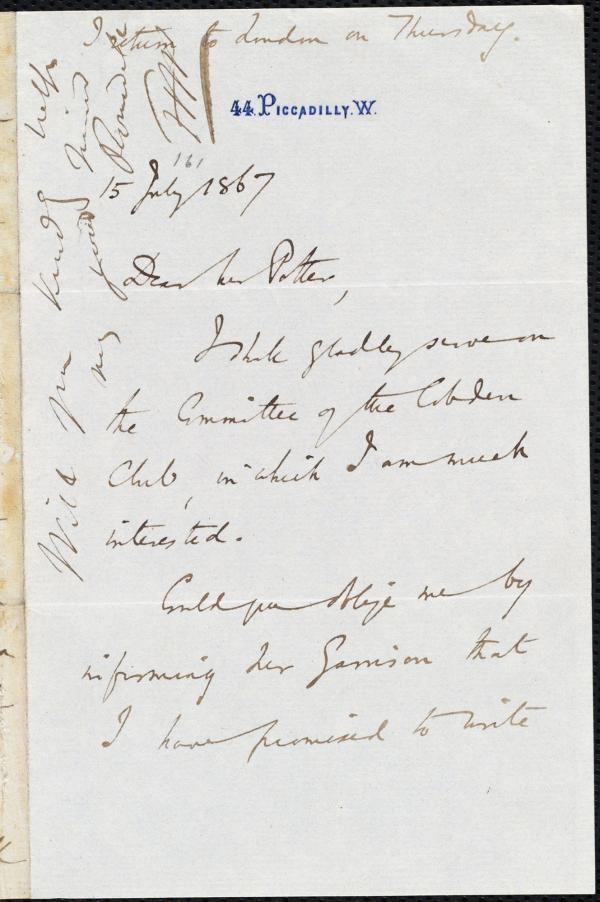 I return to London on Thursday.
44. PICCADILLY. W.
161
15 July 1867
Dear Mr Potter,
I shall gladly serve on
the Committee of the Cobden
Club, in which I am much
interested.
Could you oblige me by
informing Mr Garrison that
I have promised to write
Will you kindly help
my good friend